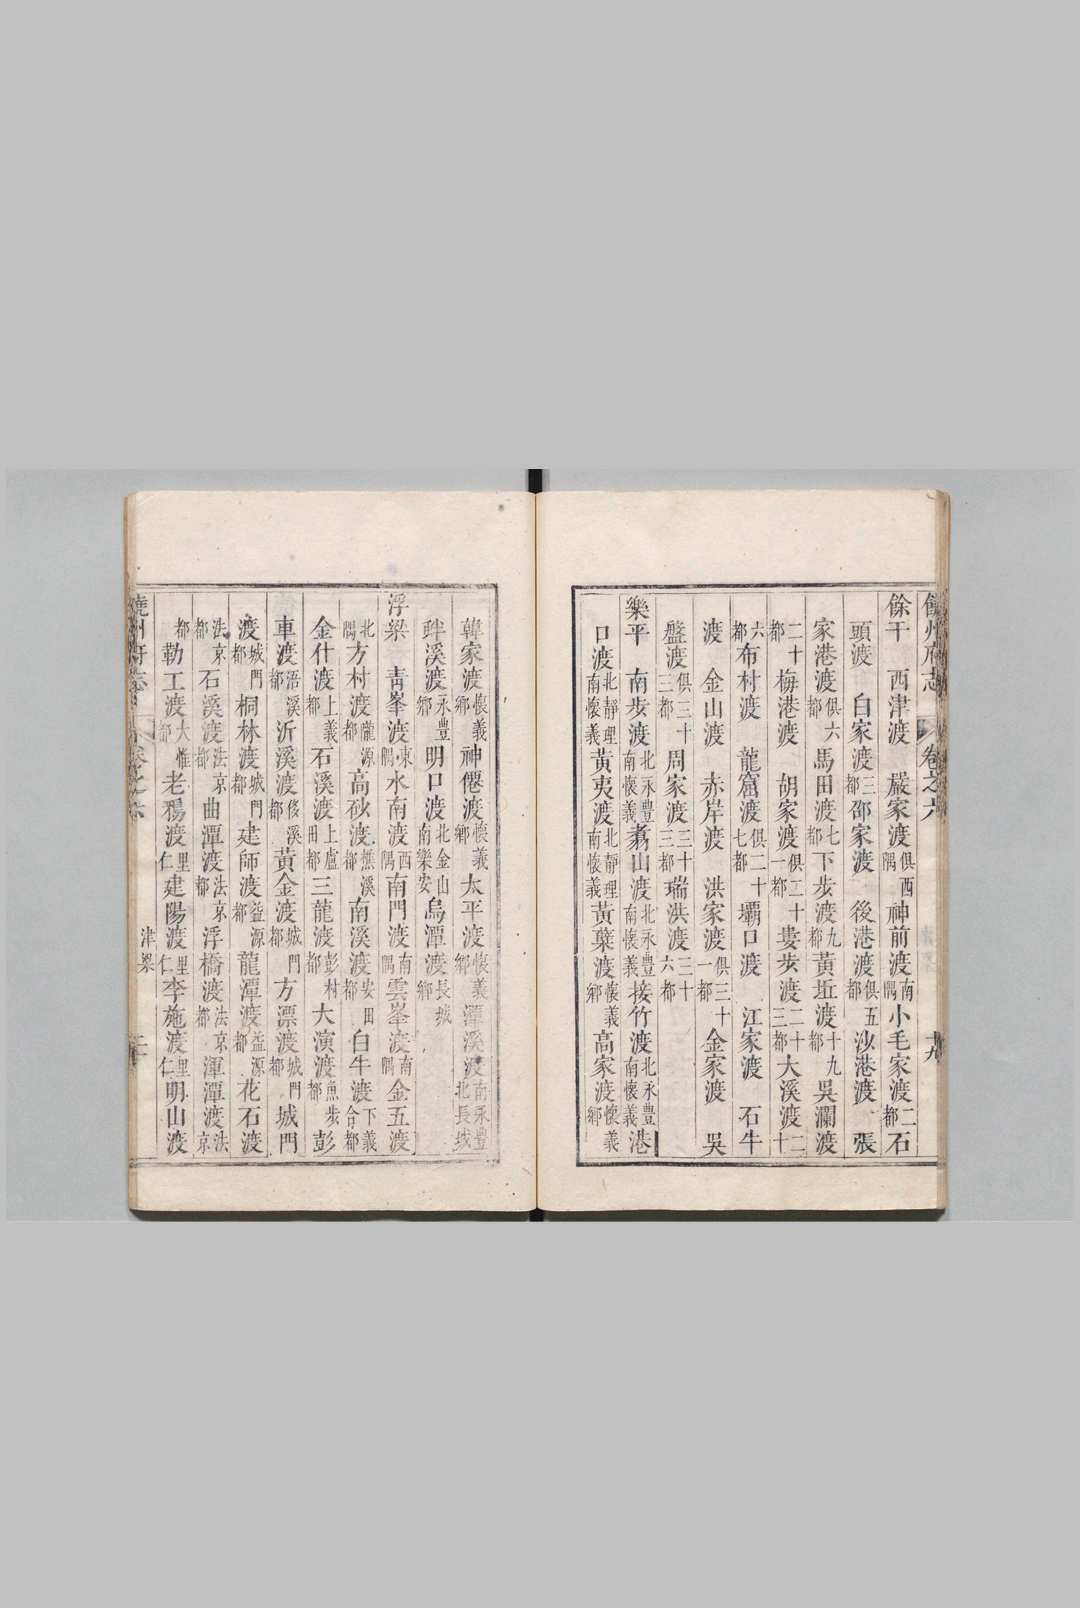 饒州府志 卷之六 十九
餘干 西津渡 嚴家渡俱西隅神前渡南隅小毛家渡二都石
頭渡 白家渡三都邵家渡 後港渡俱五都沙港渡 張
家港渡俱六都馬田渡七都下步渡九都黃坵渡十九都吳瀾渡
二十都梅港渡 胡家渡俱二十一都婁步渡二十三都大溪渡二十
六都布村渡 龍窟渡俱二十七都壩口渡 江家渡 石牛
渡 金山渡 赤岸渡 洪家渡俱三十一都金家渡 吳
盤渡俱三十三都周家渡三十三都瑞洪渡三十六都
樂平 南步渡北永豐南懷義翥山渡北永豐南懷義接竹渡北永豐南懷義港
口渡北靜理南懷義黃夷渡北靜理南懷義黃葉渡懷義鄉高家渡懷義鄉
韓家渡懷義鄉神僊渡懷義鄉太平渡懷義鄉潭溪渡南永豐北長城
畔溪渡永豐鄉明口渡北金山南樂安烏潭渡長城鄉
浮梁 青峯渡東隅水南渡西隅南門渡南隅雲峯渡南隅金五渡
北隅方村渡隴源都高砂渡樵溪都南溪渡安田都白牛渡下義合都
金什渡上義都石溪渡上盧田都三龍渡彭村都大演渡魚步都彭
車渡浯溪都沂溪渡佟溪都黃金渡城門都方漂渡城門都城門
渡城門都桐林渡城門都建師渡益源都龍潭渡益源都花石渡
法京都石溪渡法京都曲潭渡法京都浮橋渡法京都渾潭渡法京
都勒工渡大惟都老鴉渡里仁建陽渡里仁李施渡里仁明山渡
饒州府志 卷之六 津梁 二十